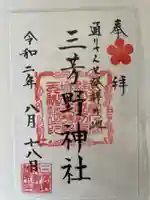 奉拝
通りゃんせ発祥の地
三芳野神社
令和二年八月十八日